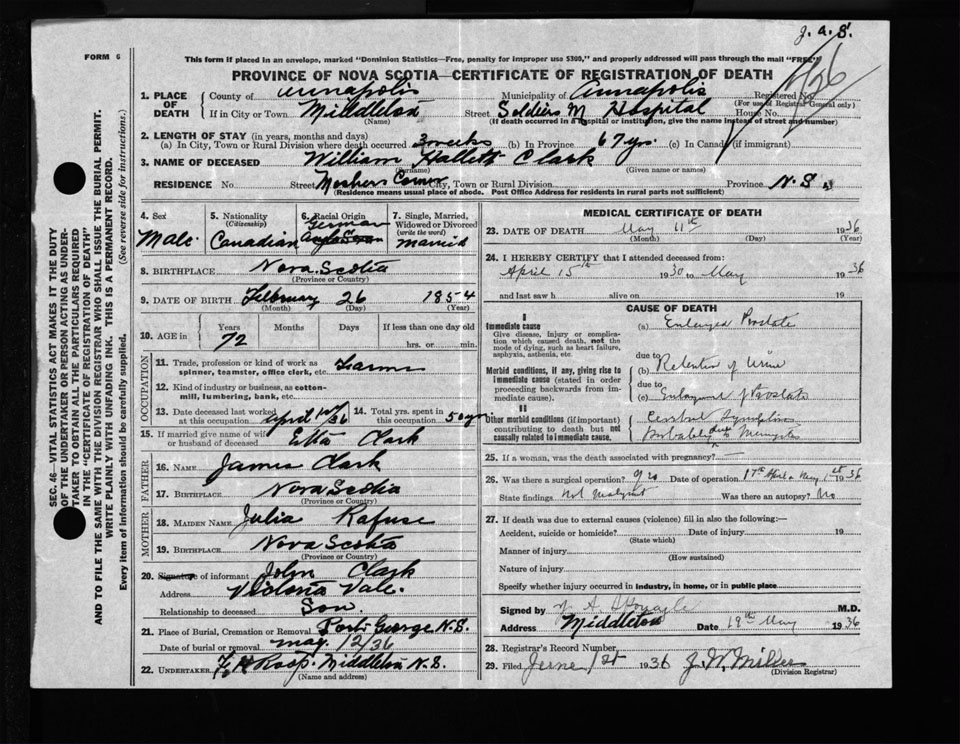 J. A. S.
FORM 6
This form if placed in an envelope, marked "Dominion Statistics—Free, penalty for improper use $300," and properly addressed will pass through the mail "FREE"
PROVINCE OF NOVA SCOTIA—CERTIFICATE OF REGISTRATION OF DEATH
1. PLACE OF DEATH
County of Annapolis Municipality of Annapolis Registered No.
(For use of Registrar General only)
If in City or Town Middleton Street Soldiers M Hospital House No.
(Name) (If death occurred in a hospital or institution, give the name instead of street and number)
2. LENGTH OF STAY (in years, months and days)
(a) In City, Town or Rural Division where death occurred 3 weeks (b) In Province 67 yrs. (c) In Canada (if immigrant)
3. NAME OF DECEASED William Hallett Clark
(Surname) (Given name or names)
RESIDENCE No Street Moshers Corner City, Town or Rural Division Province N.S.
(Residence means usual place of abode. Post Office Address for residents in rural parts not sufficient)
4. Sex
Male
5. Nationality
(Citizenship)
Canadian
6. Racial Origin
German
7. Single, Married, Widowed or Divorced
(write the word)
married
8. BIRTHPLACE Nova Scotia
(Province or Country)
9. DATE OF BIRTH February 26 1854
(Month) (Day) (Year)
10. AGE in
Years Months Days If less than one day old
72 hrs. or min.
OCCUPATION
11. Trade, profession or kind of work as spinner, teamster, office clerk, etc. Farmer
12. Kind of industry or business, as cotton-mill, lumbering, bank, etc.
13. Date deceased last worked at this occupation April 10/36 14. Total yrs. spent in this occupation 50 yrs.
15. If married give name of wife or husband of deceased Etta Clark
FATHER
16. NAME James Clark
17. BIRTHPLACE Nova Scotia
(Province or Country)
MOTHER
18. MAIDEN NAME Julia Rafuse
19. BIRTHPLACE Nova Scotia
(Province or Country)
20. Signature of informant John Clark
Address Victoria Vale.
Relationship to deceased Son.
21. Place of Burial, Cremation or Removal Port George N.S.
Date of burial or removal May 12/36
22. UNDERTAKER F. H. Roop. Middleton N.S.
(Name and address)
MEDICAL CERTIFICATE OF DEATH
23. DATE OF DEATH May 11th 1936
(Month) (Day) (Year)
24. I HEREBY CERTIFY that I attended deceased from:
April 15th 1930 to May 1936
and last saw h alive on 19
CAUSE OF DEATH
I
Immediate cause
Give disease, injury or complication which caused death, not the mode of dying, such as heart failure, asphyxia, asthenia, etc.
(a) Enlarged Prostate
due to
Morbid conditions, if any, giving rise to immediate cause (stated in order proceeding backwards from immediate cause).
(b) Retention of Urine
due to
(c) Enlargement of Prostate
II
Other morbid conditions (if important) contributing to death but not causally related to immediate cause.
Cerebral Symptoms
Probably due to
25. If a woman, was the death associated with pregnancy? —
26. Was there a surgical operation? yes Date of operation 17th April & May 1st 1936
State findings not malignant Was there an autopsy? No
27. If death was due to external causes (violence) fill in also the following:—
Accident, suicide or homicide? Date of injury 19
(State which)
Manner of injury
(How sustained)
Nature of injury
Specify whether injury occurred in industry, in home, or in public place
Signed by M.D.
Address Middleton Date 19th May 1936
28. Registrar's Record Number
29. Filed June 1st 1936 J. W. Miller
(Division Registrar)
SEC. 46—VITAL STATISTICS ACT MAKES IT THE DUTY OF THE UNDERTAKER OR PERSON ACTING AS UNDERTAKER TO OBTAIN ALL THE PARTICULARS REQUIRED IN THE "CERTIFICATE OF REGISTRATION OF DEATH"
AND TO FILE THE SAME WITH THE DIVISION REGISTRAR WHO SHALL ISSUE THE BURIAL PERMIT.
WRITE PLAINLY WITH UNFADING INK. THIS IS A PERMANENT RECORD.
Every item of information should be carefully supplied. (See reverse side for instructions.)